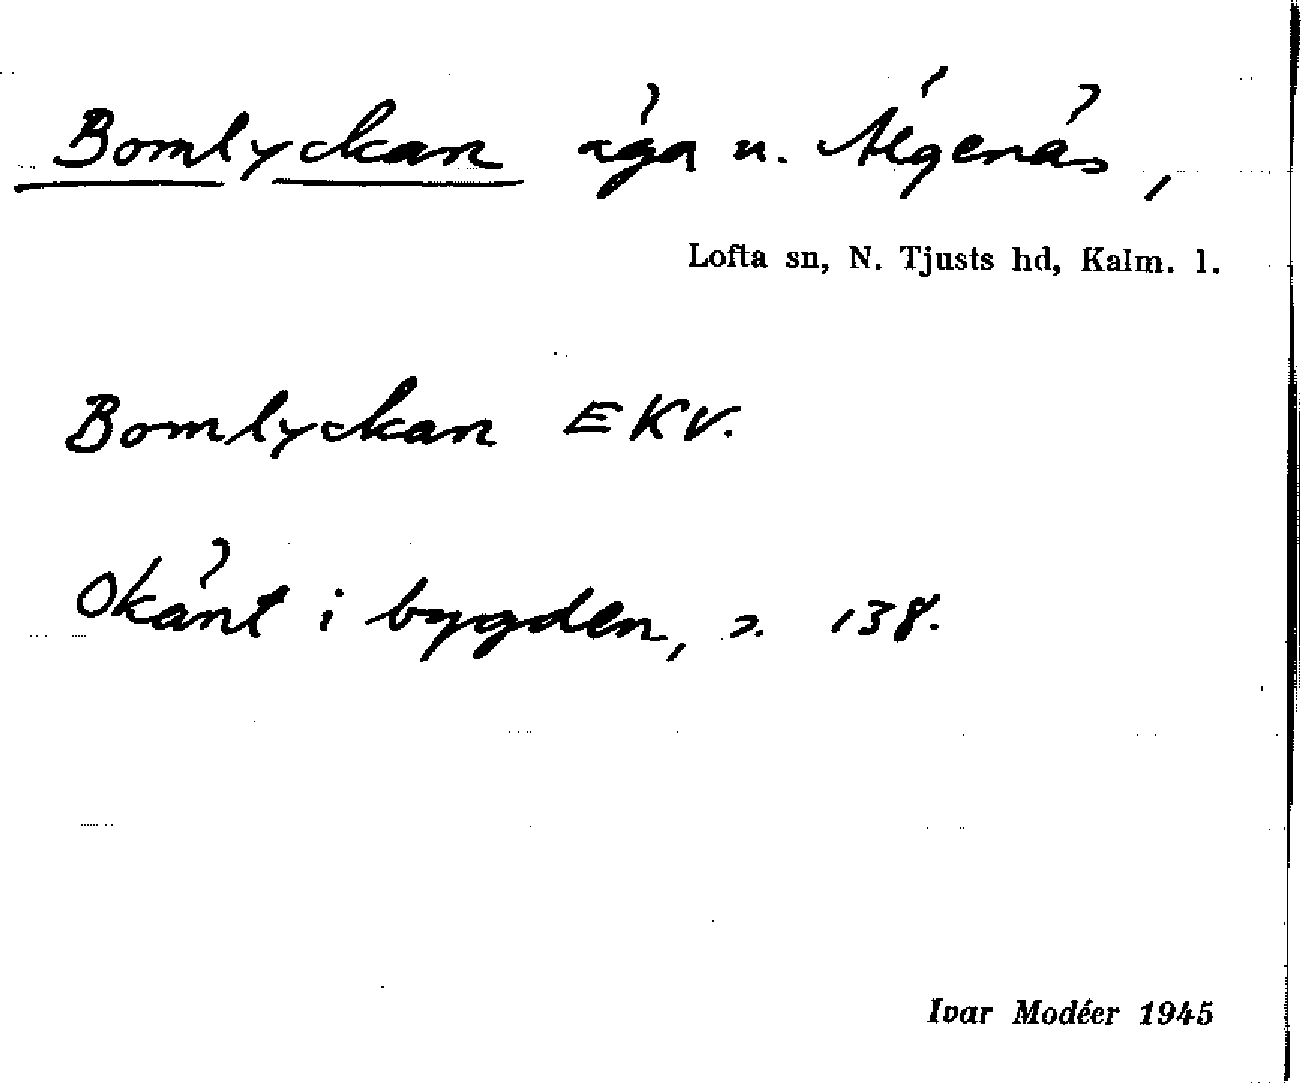 Bomlyckan äga u. Älgenäs,
Lofta sn, N. Tjusts hd, Kalm. l.
Bomlyckan EKV.
Okänt i bygden, s. 138.
Ivar Modéer 1945